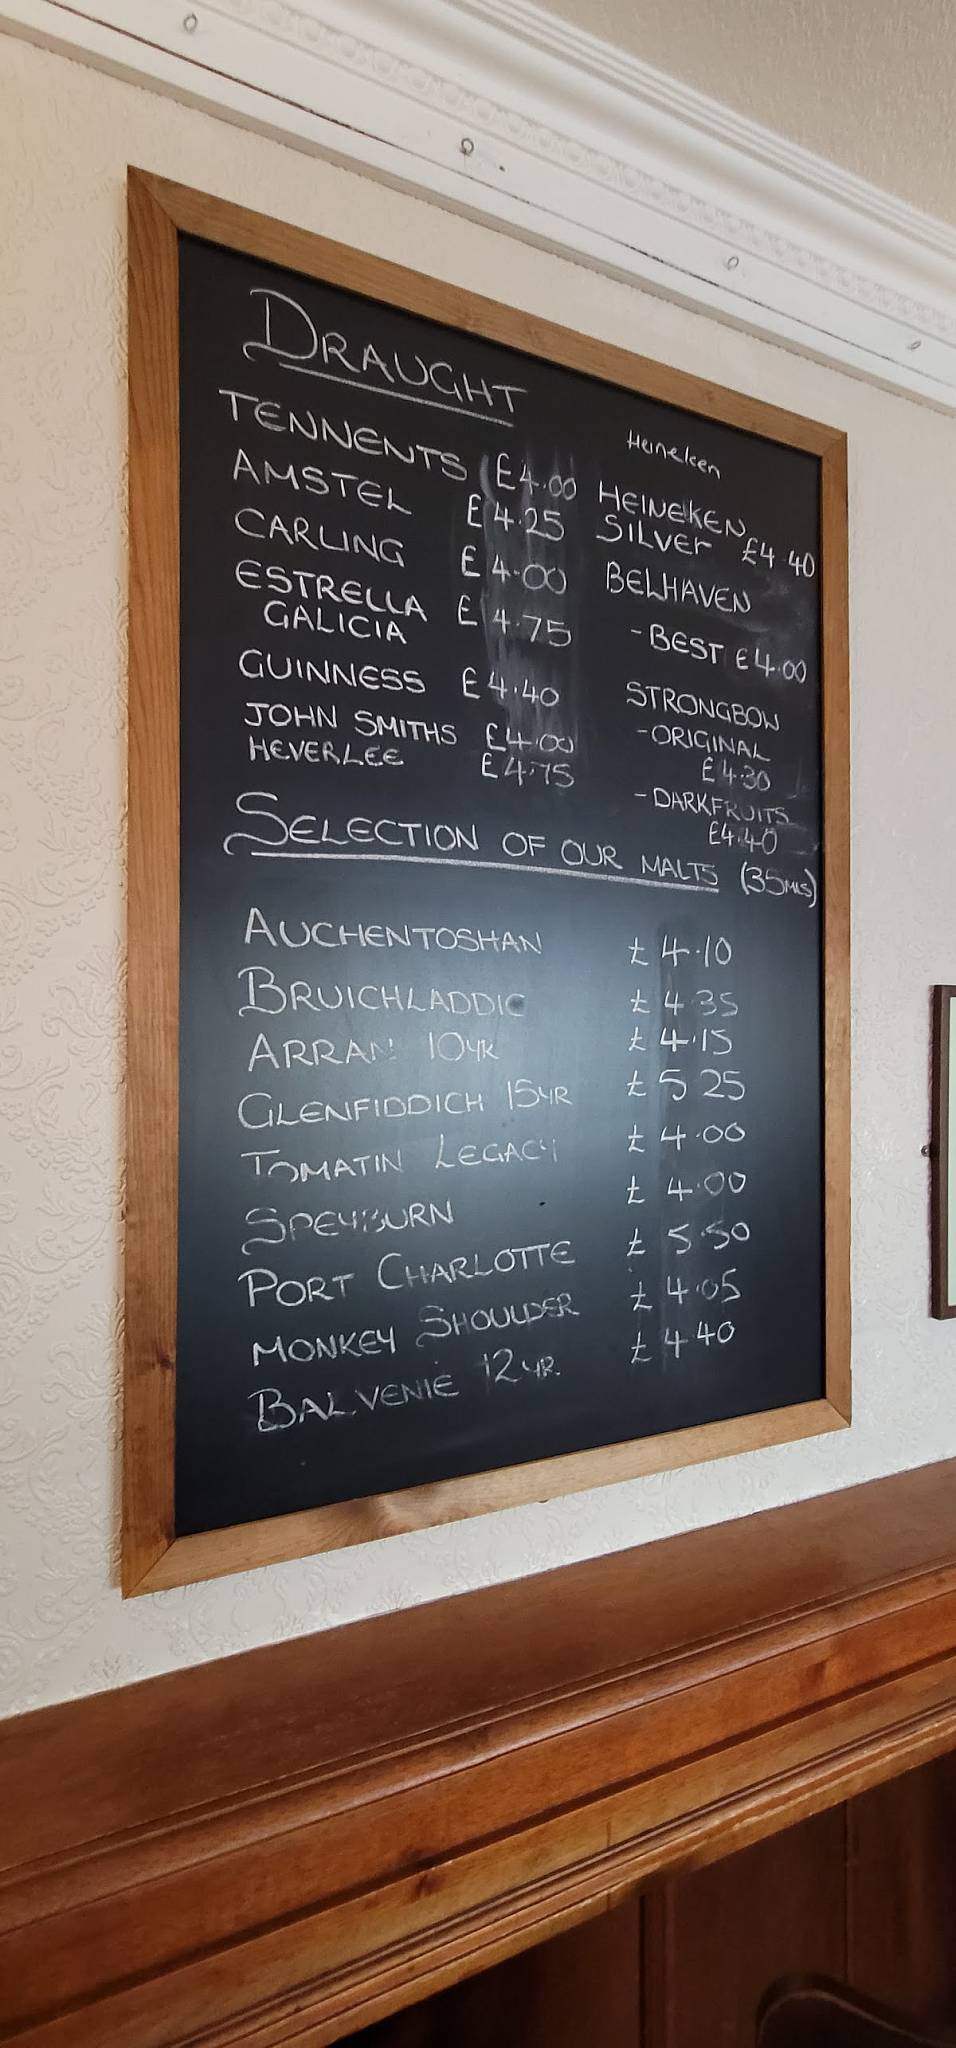 DRAUGHT
TENNENTS £4.00
AMSTEL £4.25
CARLING £4.00
ESTRELLA
GALICIA £4.75
GUINNESS £4.40
JOHN SMITHS £4.00
HEVERLEE £4.75
Heineken
HEINEKEN
SILVER £4.40
BELHAVEN
-BEST £4.00
STRONGBOW
-ORIGINAL
£4.30
-DARKFRUITS
£4.40
SELECTION OF OUR MALTS (35MLS)
AUCHENTOSHAN £4.10
BRUICHLADDIC £4.35
ARRAN 10YR £4.15
GLENFIDDICH 15YR £5.25
TOMATIN LEGACY £4.00
SPEYBURN £4.00
PORT CHARLOTTE £5.50
MONKEY SHOULDER £4.05
BALVENIE 12YR. £4.40